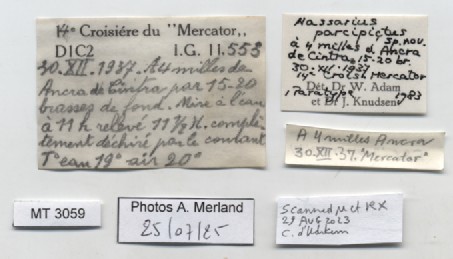 14e Croisière du "Mercator,,
D1C2 I.G. 11.555
30.XII.1937. A 4 milles de
Ancra de Cintra par 15-20
brasses de fond. Mise à l'eau
à 11h relevé 11 1/2 H. complè
tement déchiré par le courant
T° eau 19° air 20°
Nassarius
parcipictus
sp. nov.
à 4 milles d'Ancra
de Cintra. 15-20 br.
30-XII-1937
14e Crois. Mercator
Dét. Dr W. Adam
et Dr J. Knudsen
Paratype 1983
A 4 milles Ancra
30.XII.37. "Mercator"
MT 3059
Photos A. Merland
25/07/25
Scanned µct RX
29 AUG 2023
C.